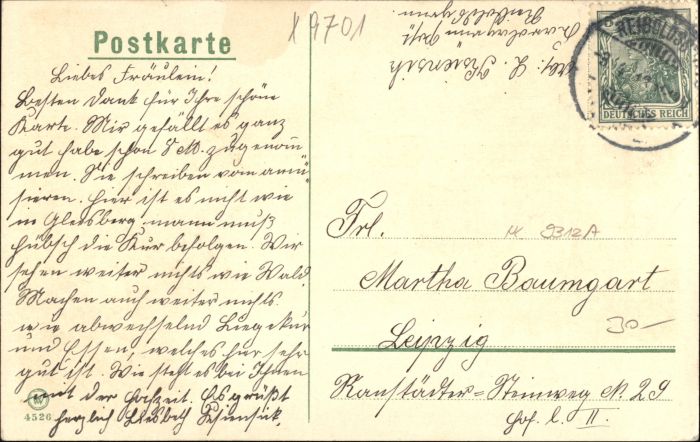 X 9701
Postkarte
Liebes Fräulein!
Besten Dank für Ihre schöne
Karte. Mir gefällt es ganz
gut habe schon 5 M. zugenom
men. Sie schreiben vom amü
sieren. Hier ist es nicht wie
in Gleesberg. mann muß
hübsch die Kur befolgen. Wir
sehen weiter nichts wie Wald.
Machen auch weiter nichts
wie abwechselnd Liegekur
und Essen, welches hier sehr
gut ist. Wie steht es bei Ihnen
mit der Hochzeit. Es grüßt
herzlich Liesbeth
4526
DEUTSCHES REICH
Frl.
IX 9312A
Martha Baumgart
Leipzig
30-
Ranstädter=Steinweg N. 29
Hof. l. II.